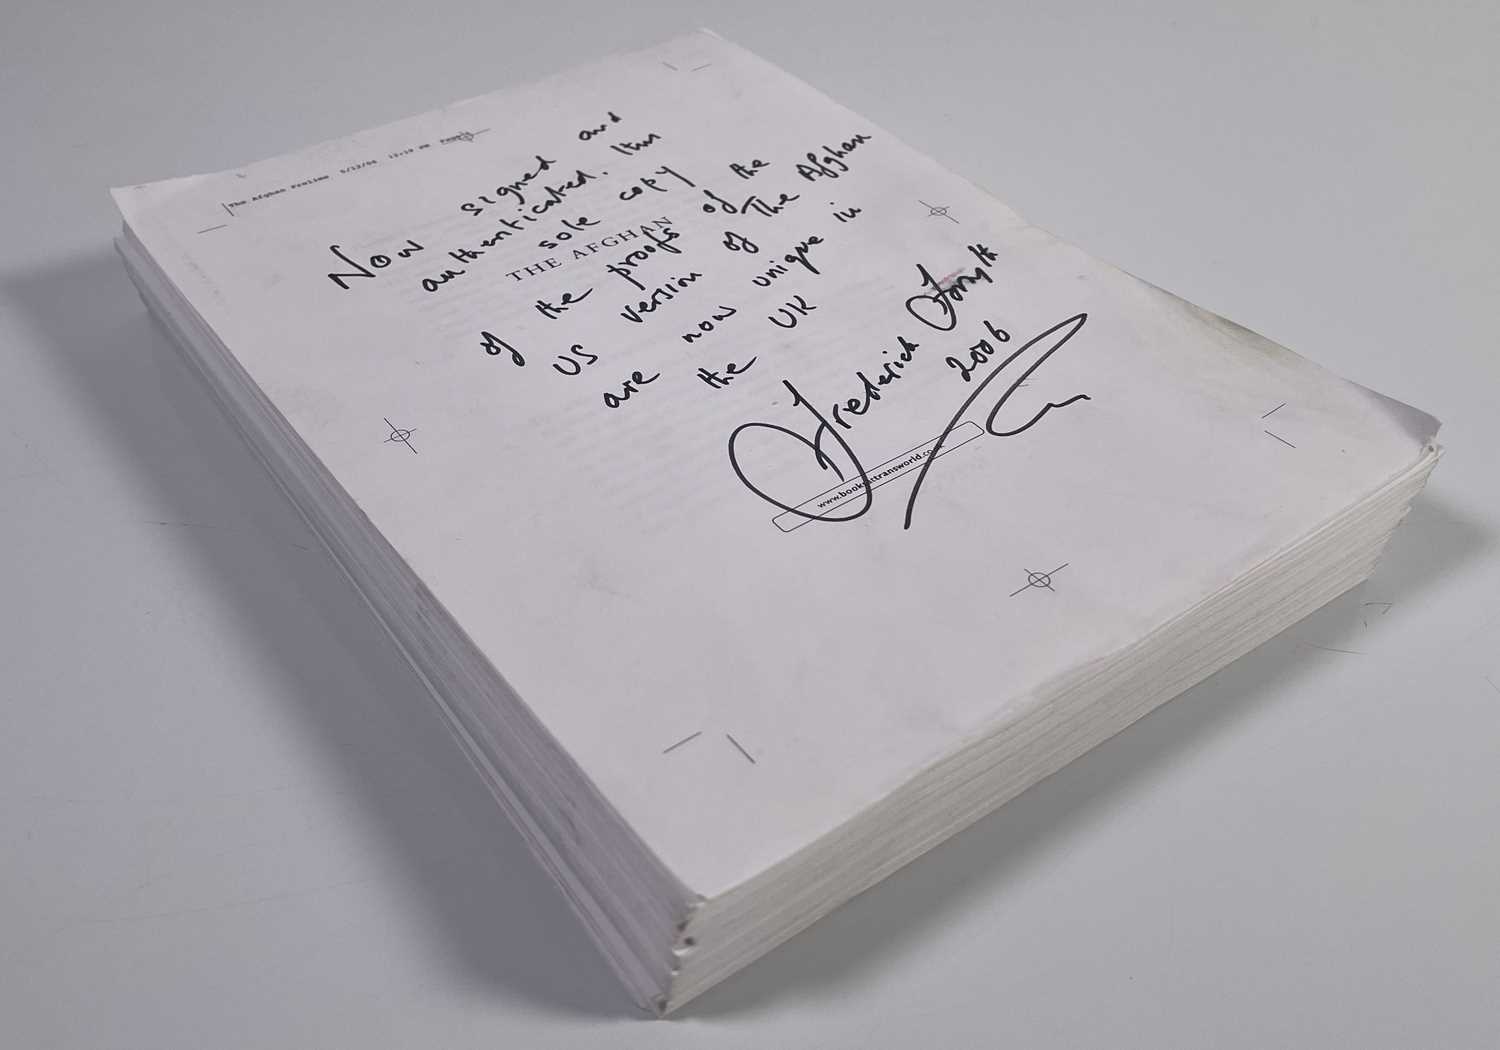 The Afghan Prelims 5/12/06 12:19 PM
Now signed and
authenticated. This
sole copy
THE AFGHAN
of the proofs of the
US version of The Afghan
are now unique in
the UK
Frederick Forsyth
2006
www.booksattransworld.co.uk